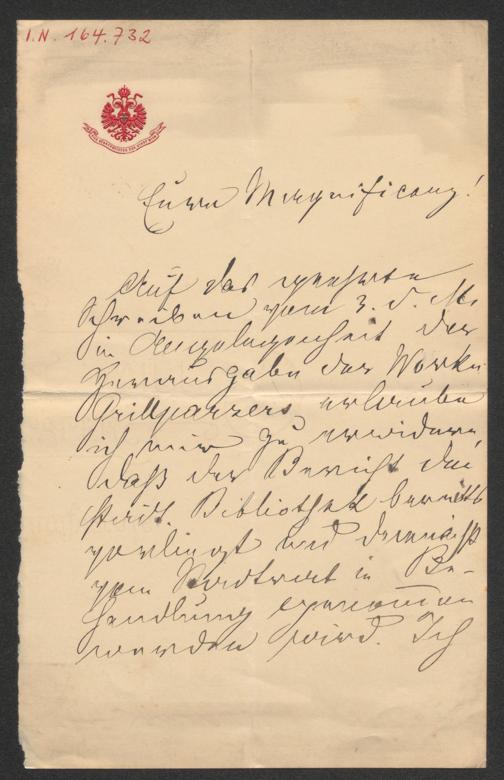 I.N. 164.732
Eurer Magnificenz!
Auf das geehrte
Schreiben vom 3. d. M.
in Angelegenheit der
Herausgabe der Werke
Grillparzers erlaube
ich mir zu erwidern,
daß der Bericht der
städt. Bibliothek bereits
vorliegt und demnächst
vom Stadtrat in Be-
handlung genommen
werden wird. Ich